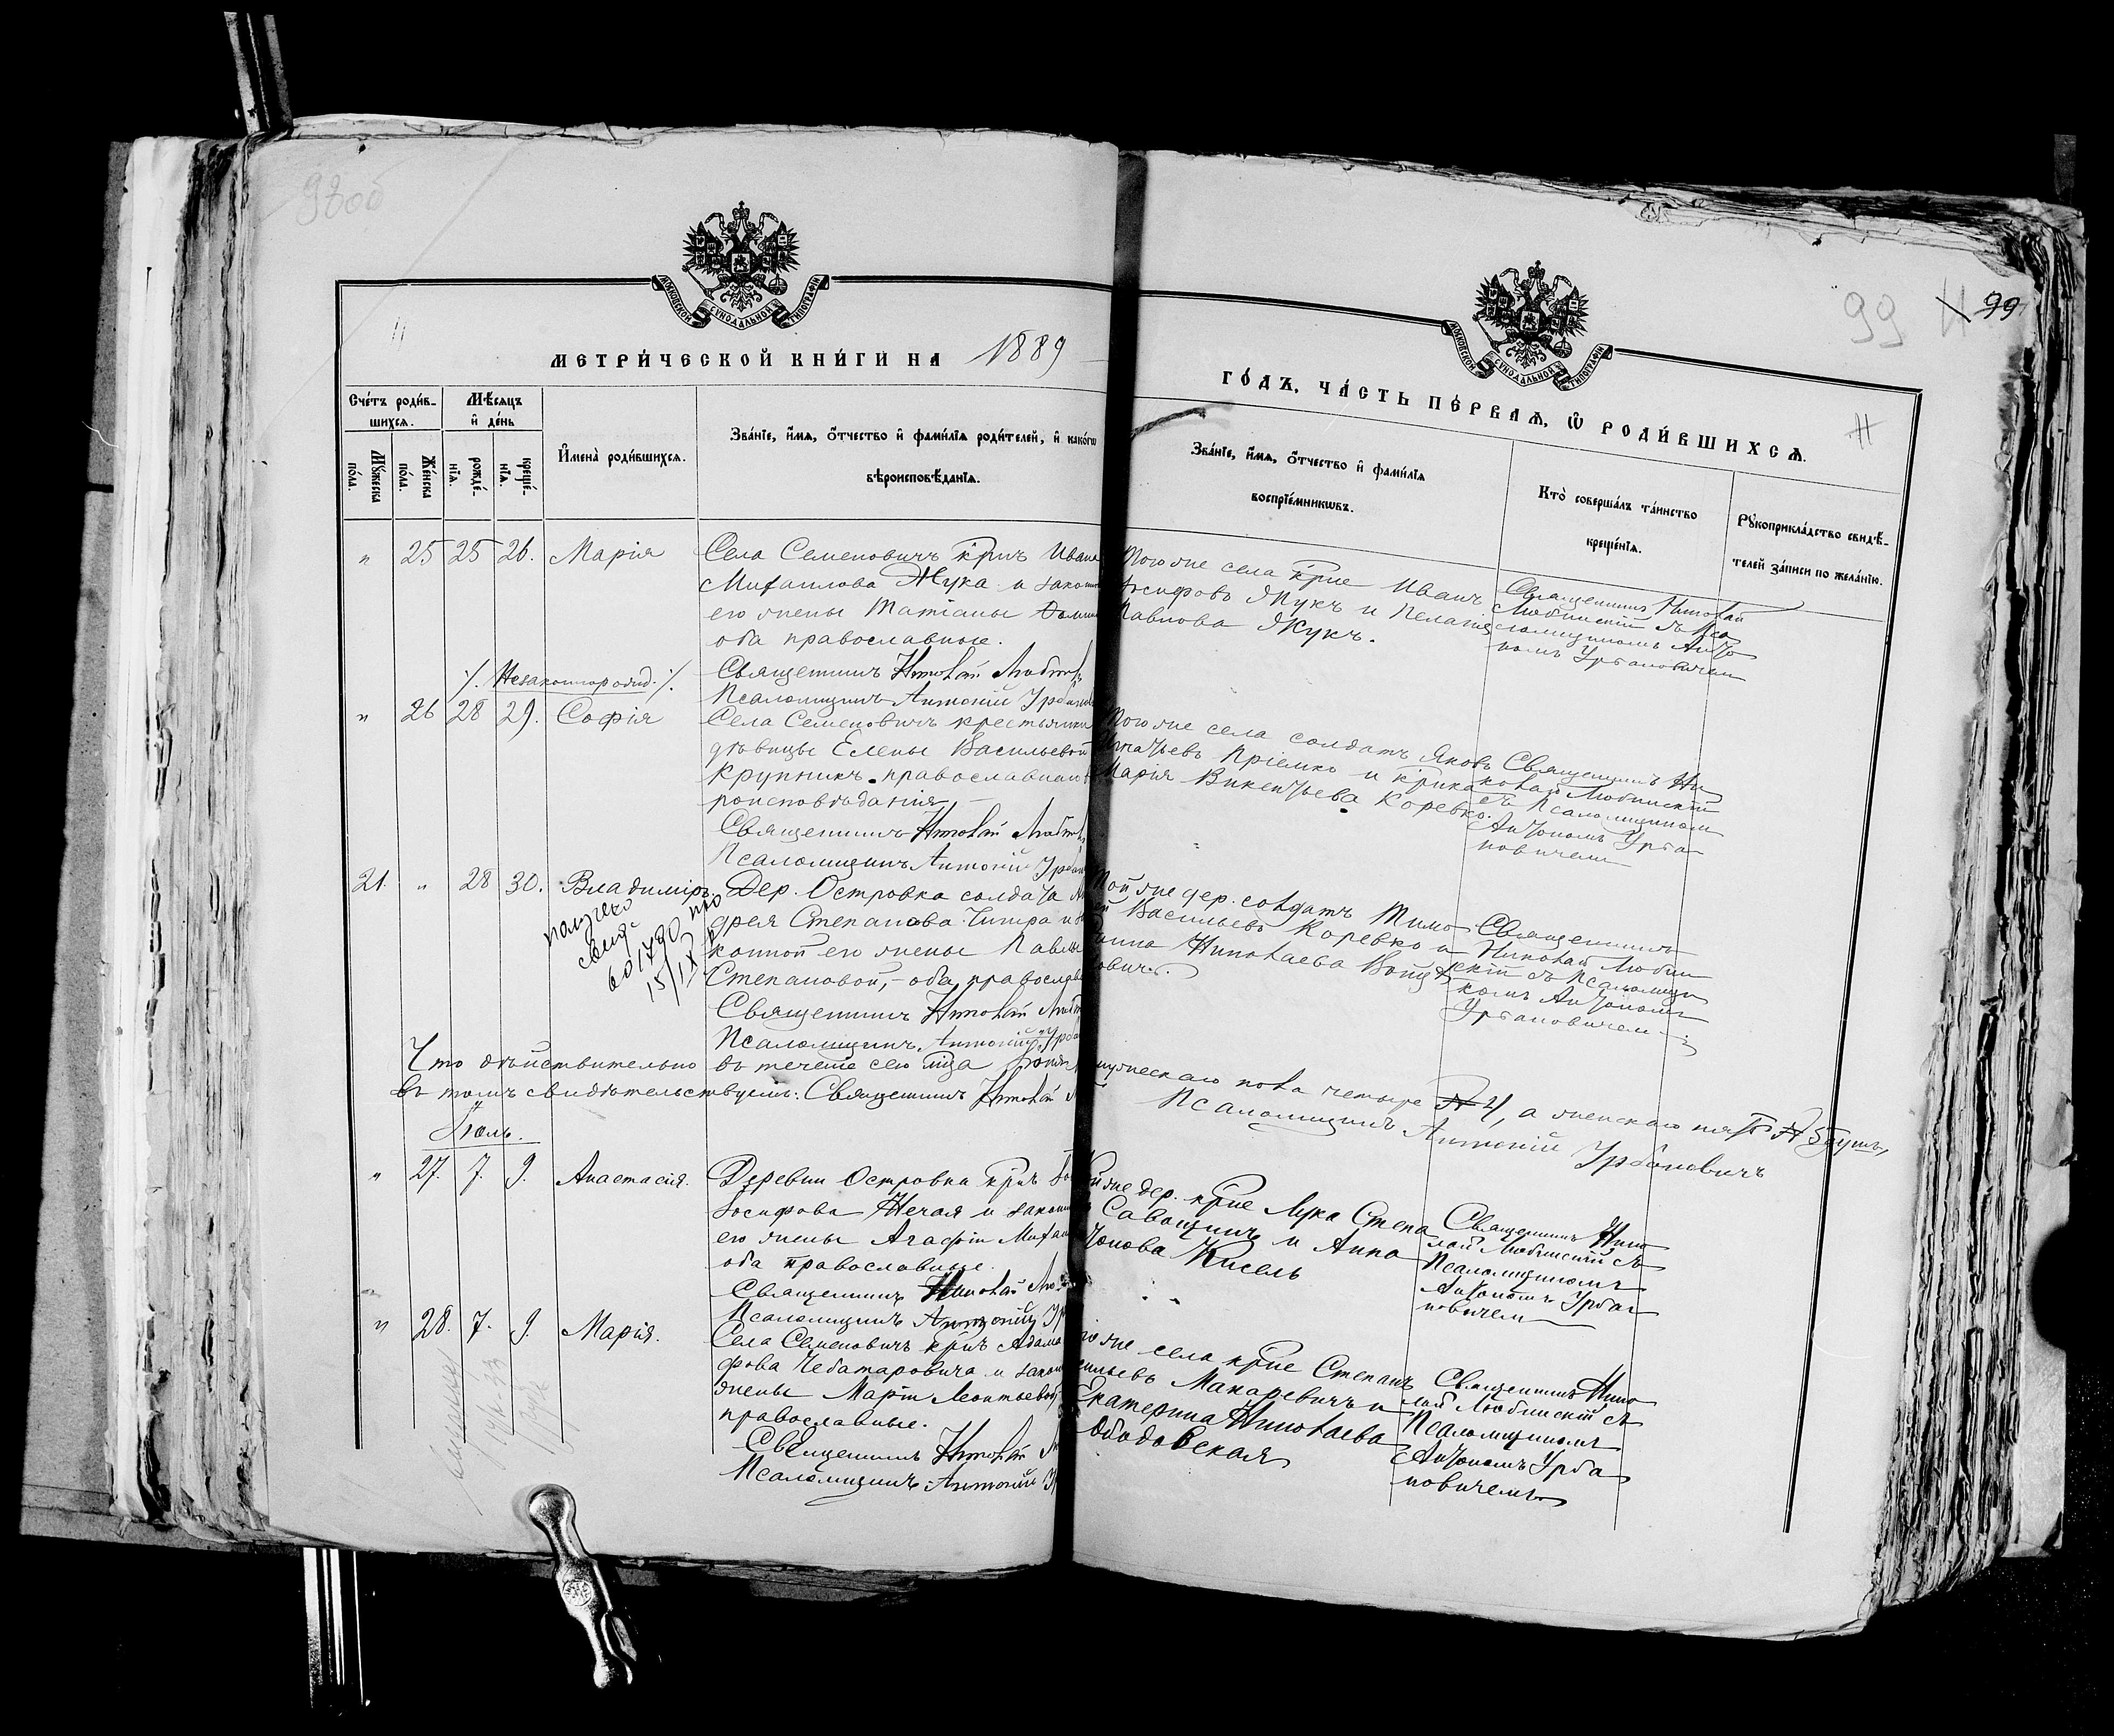 98об
99
99
11
11
МОСКОВСКОЙ СѴНОДАЛЬНОЙ ТИПОГРАФІИ
МОСКОВСКОЙ СѴНОДАЛЬНОЙ ТИПОГРАФІИ
МЕТРИ́ЧЕСКОЙ КНИ́ГИ НА 1889
ГО́ДЪ, ЧА́СТЬ ПЕ́РВАѦ, Ѽ РОДИ́ВШИХСѦ.
Сче́тъ роди́в-
шихсѧ.
Мꙋ́жеска по́ла.
Же́нска по́ла.
Мѣ́сѧцъ
и҆ де́нь
рожде́-
нїѧ.
креще́-
нїѧ.
И҆мена̀ роди́вшихсѧ.
Зва́нїе, и҆́мѧ, ѻ҆́тчество и҆ фами́лїѧ роди́телей, и҆ како́гѡ
вѣроисповѣ́данїѧ.
Зва́нїе, и҆́мѧ, ѻ҆́тчество и҆ фами́лїѧ
воспрїе́мникѡвъ.
Кто̀ соверша́лъ та́инство
креще́нїѧ.
Рꙋкоприкла́дство свидѣ́-
телей за́писи по жела́нїю.
" 25 25 26. Марія
Села Семеновичъ кр҃нъ Ивана
Михаилова Жука и закон
его жены Татіаны
оба православные.
Священникъ Николай
Псаломщикъ Антоній Урбанов
Того же села кр҃не Иванъ
Іосифовъ Жукъ и Пелагія
Павлова Жукъ.
Священникъ Николай
Любинскій съ Пса
ломщикомъ Анто
номъ Урбановичемъ
•/. Незаконнорожд. •/.
" 26 28 29. Софія
Села Семеновичъ крестьянки
дѣвицы Елены Васильевой
Крупникъ православнаго в
роисповѣданія
Священникъ Николай
Псаломщикъ Антоній Урбан
Того же села солдатъ Яковъ
Игнатьевъ Пріемко и кр҃нка
Марія Викентьева Коревко.
Священникъ Ни
колай Любинскій
съ Псаломщиком
Антономъ Урба
новичемъ
21. " 28 30. Владиміръ.
Дер. Островка солдата Ан
дрея Степанова Чипра и за
конной его жены Павлы
Степановой, - оба православ
Священникъ Николай
Псаломщикъ Антоній Урба
Той же дер. солдатъ Тимо
й Васильевъ Коревко и
Анна Николаева Войце
ович.
Священникъ
Николай Любин
скій съ Псаломщи
комъ Антономъ
Урбановичемъ
601790
15/IX
Что дѣйствительно въ теченіе сего м҃ца Іюня мужескаго пола четыре 4, а женскаго пять 5 душъ,
въ томъ свидѣтельствуемъ: Священникъ Николай
Псаломщикъ Антоній Урбановичъ
Іюль.
" 27. 7. 9. Анастасія.
Деревни Островка кр҃нъ
Іосифова Нечая и законн
его жены Агафіи Михаи
оба православные.
Священникъ Николай Лю
Псаломщикъ Антоній Ур
й же дер. кр҃не Лука Степа
Савощикъ и Анна
тонова Кисель
Священникъ Нико
лай Любинскій съ
Псаломщикомъ
Антономъ Урба
новичем
" 28. 7. 9. Марія.
Села Семеновичъ кр҃нъ Адама
фова Чеботаровича и закон
жены Маріи Леонтьевой
православные.
Священникъ Николай
Псаломщикъ Антоній
го же села кр҃не Степанъ
сильевъ Макаревичъ и
Екатерина Николаева
Ободовская
Священникъ Нико
лай Любинскій съ
Псаломщикомъ
Антономъ Урба
новичемъ